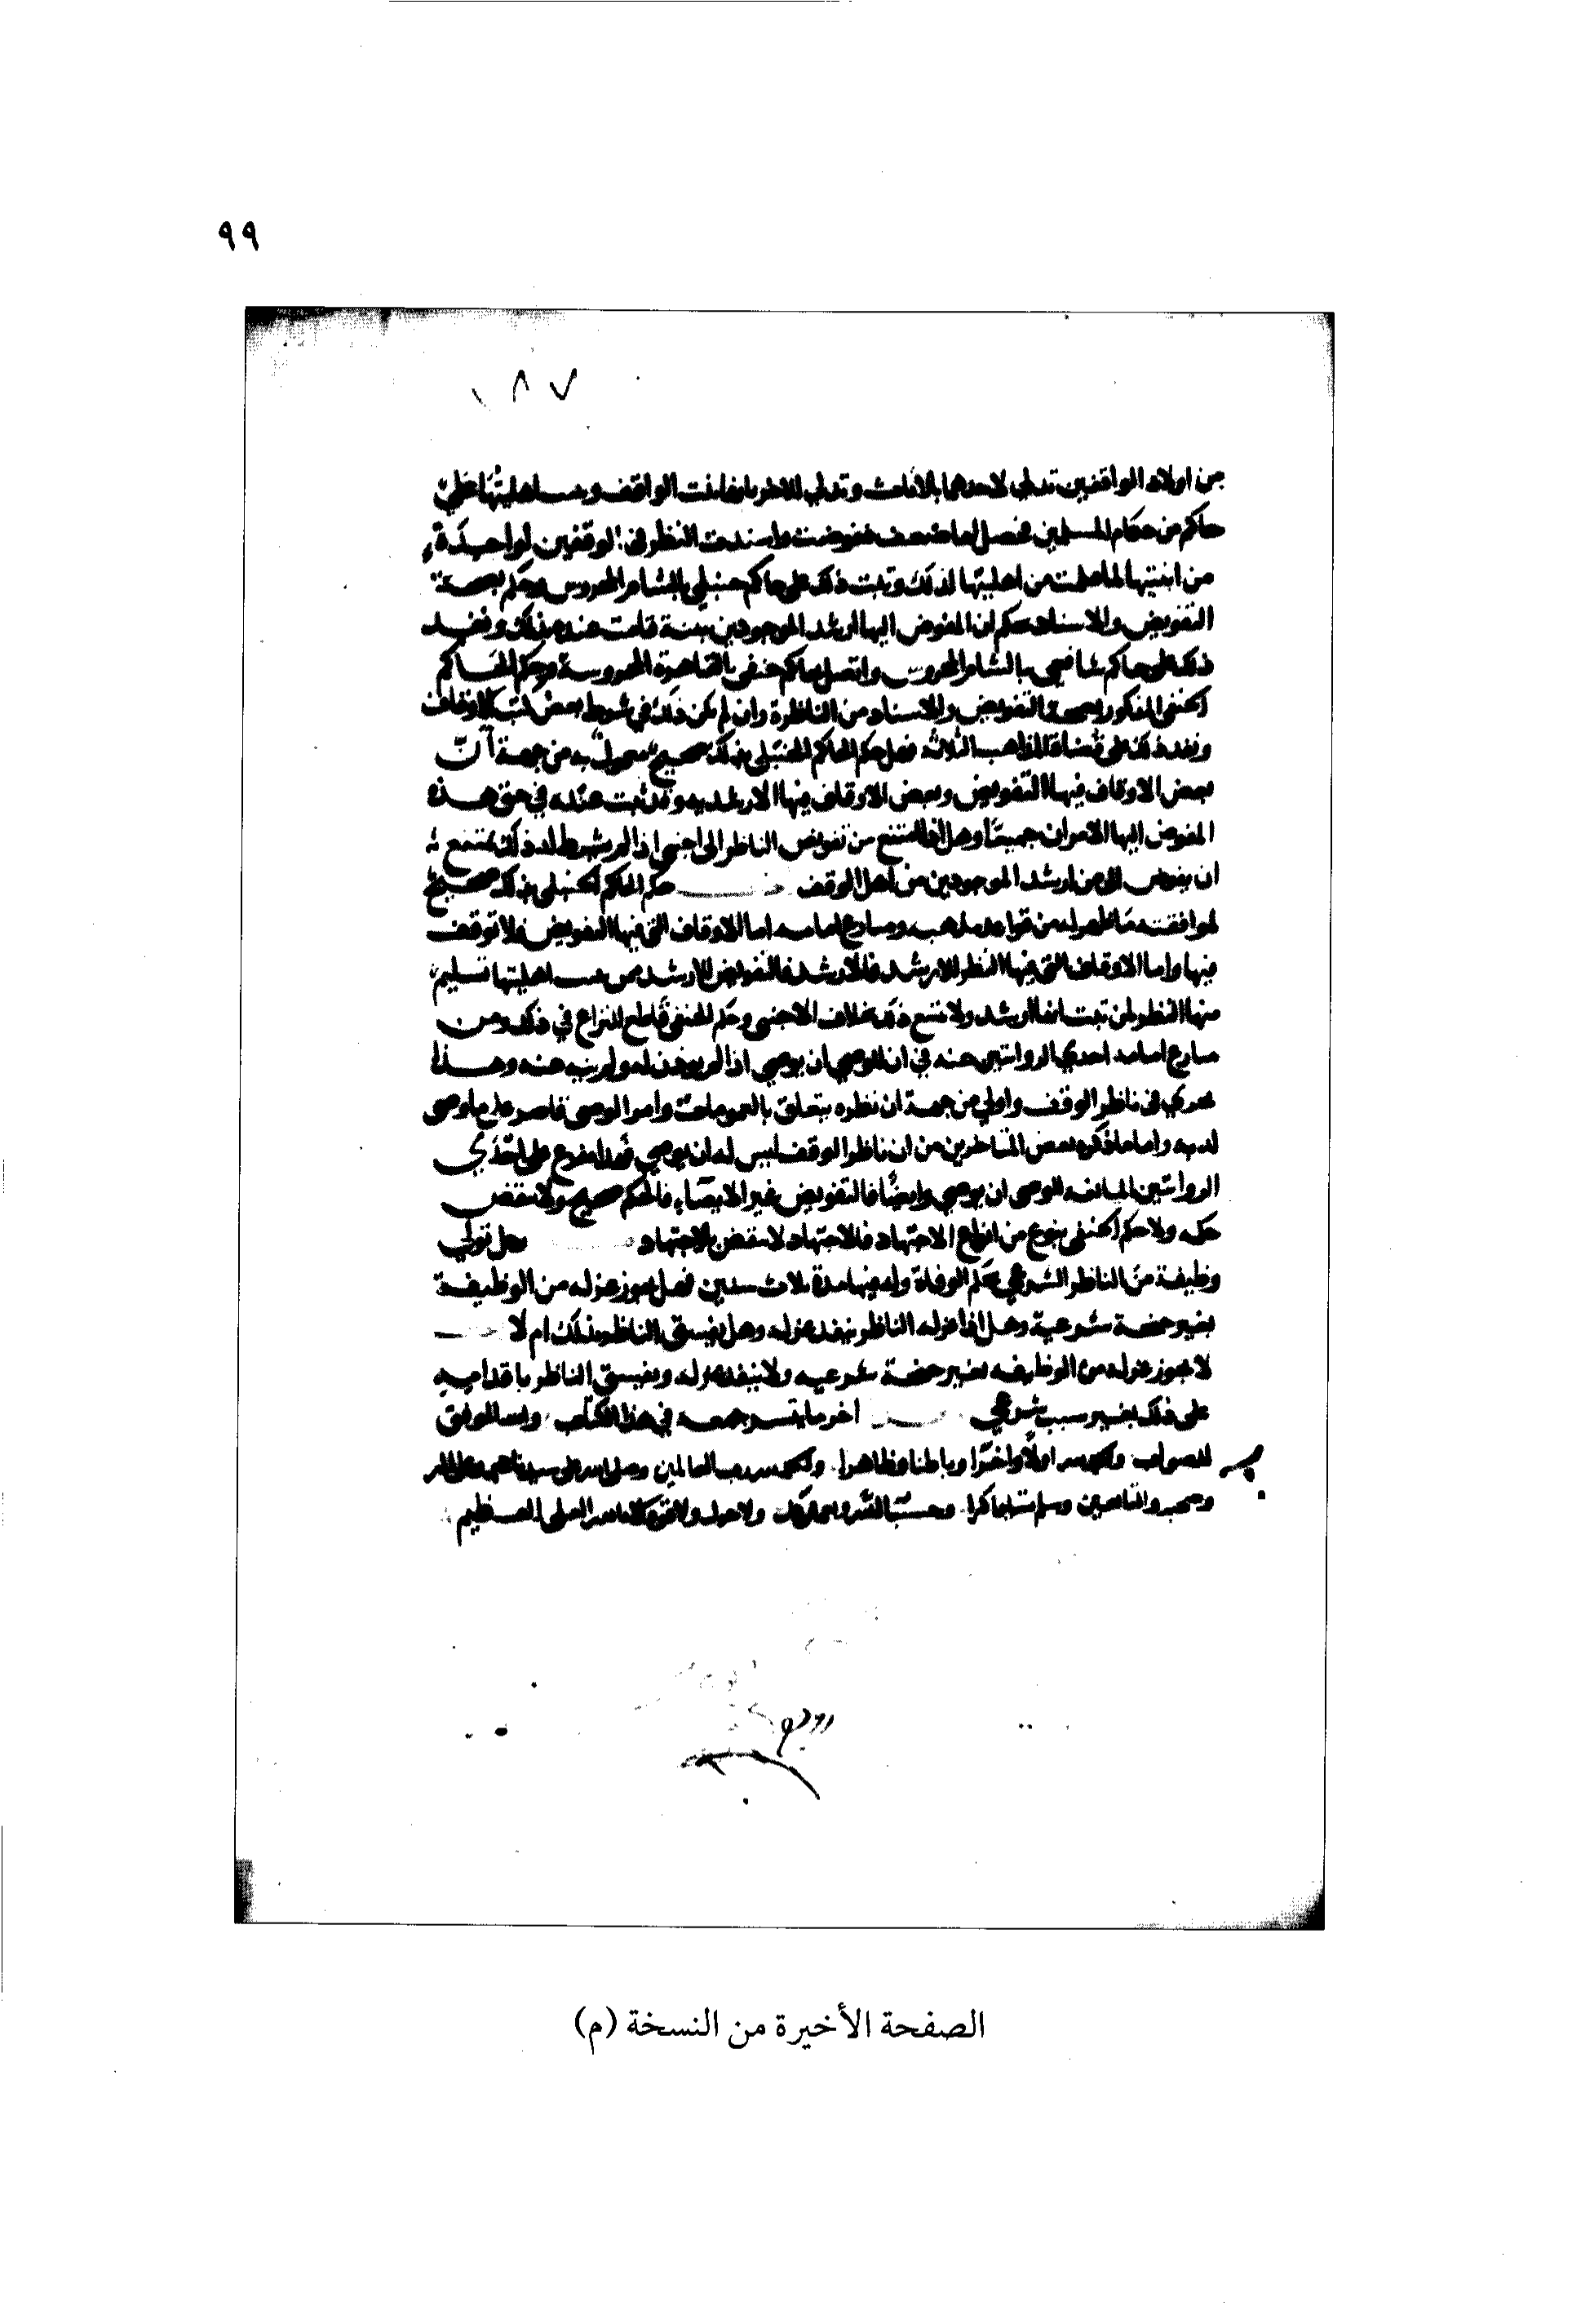 ٩٩
١٨٧
من اولاد الواقفين تدلي لاحدهما بالاناث وتدلي للاخر الواقف اهليتها علي
حاكم من حكام المسلمين ففوضت واسندت النظر في الوقفين لواحدة
من ابنتيها لما علمت من اهليتها لذلك وثبت ذلك على حاكم حنبلي بالشام المحروس وحكم بصحة
التفويض والاسناد حكم ان المفوض اليها ارشد الموجودين ببينة قامت عنده بذلك ونفذ
ذلك على حاكم شافعي بالشام المحروس واتصل بحاكم حنفي بالقاهرة المحروسة وحكم الحاكم
الحنفي المذكور بصحة التفويض والاسناد من الناظرة وان لم يكن ذلك في شروط بعض كتب الاوقاف
ونفذ ذلك على قضاة المذاهب الثلاثة فهل حكم الحاكم الحنبلي بذلك صحيح معمول به من جهة أنّ
بعض الاوقاف فيها التفويض وبعض الاوقاف فيها الارشدية وقد ثبت عنده في حق هذه
المفوض اليها الامران جميعا وهل اذا امتنع من تفويض الناظر الى اجنبي اذا لم يشرط له ذلك يمتنع
ان يفوض الى من ارشد الموجودين من اهل الوقف حكم الحاكم الحنبلي بذلك صحيح
لموافقته ما ظهر له من قواعد مذهبه امامه اما الاوقاف التي فيها التفويض فلا توقف
فيها واما الاوقاف التي فيها النظر للارشد فالارشد فالتفويض للارشد اهليتها تسليم
منها النظر لمن ثبت انها ارشد ولا يمتنع ذلك بخلاف الاجنبي وحكم الحنفي قاطع للنزاع في ذلك ومن
امامه احدي الروايتين عنه في ان للوصي ان يوصي اذا لم يوذن له ولم ينه عنه وهذا
يجري في ناظر الوقف واولي من جهة ان نظره يتعلق بالعمومات وامر الوصي قاصر على ما وصى
لديه واما ما ذكره بعض المتاخرين من ان ناظر الوقف ليس له ان يوصي فهذا مفرع على احدي
الروايتين للوصي ان يوصي وايضا فالتفويض غير الايصاء فالحكم صحيح ولا ينقض
حكمه ولا حكم الحنفي بنوع من انواع الاجتهاد فالاجتهاد لا ينقض بالاجتهاد رجل تولي
وظيفة من الناظر الشرعي بحكم الوفاة وله فيها مدة ثلاث سنين فهل يجوز عزله من الوظيفة
بغير جنحة شرعية وهل اذا عزله الناظر ينفذ عزله وهل يفسق الناظر بذلك ام لا
لا يجوز عزله من الوظيفه بغير جنحة شرعيه ولا ينفذ عزله ويفسق الناظر باقدامه
على ذلك بغير سبب شرعي اخر ما تيسر جمعه في هذا الكتاب والله الموفق
للصواب والحمد لله اولا واخرا وباطنا وظاهرا والحمد لله رب العالمين وصلى الله على سيدنا محمد وعلى اله
وصحبه والتابعين وسلم تسليما كثيرا وحسبنا الله ونعم الوكيل ولا حول ولا قوة الا بالله العلي العظيم
الصفحة الأخيرة من النسخة (م)